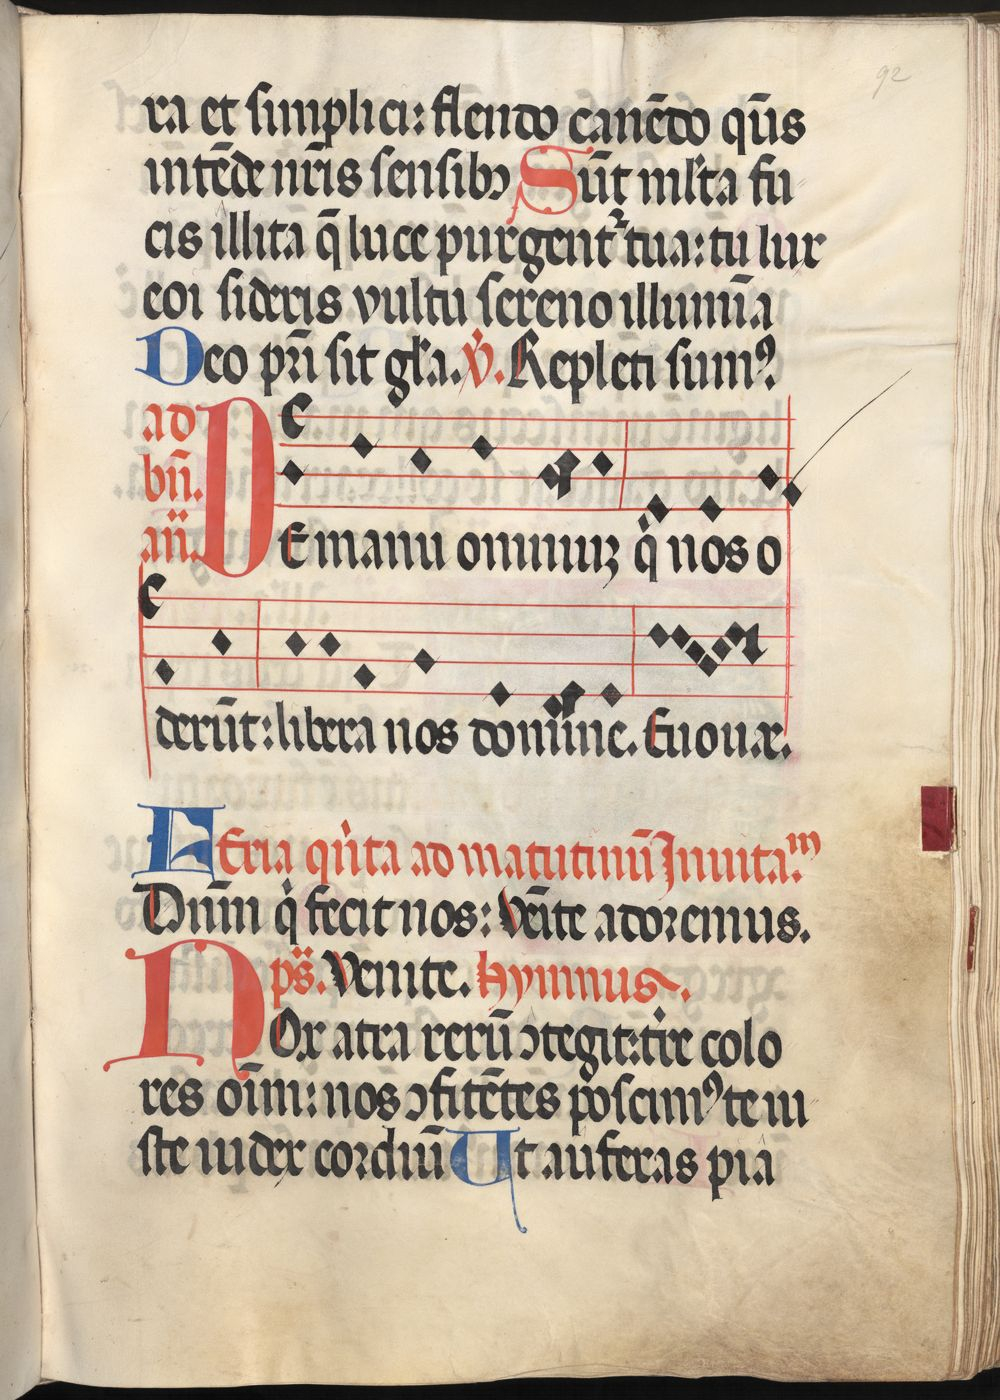 92
ra et simplici: flendo canēdo qūs
intēde nr̄is sensibꝫ Sūt ml̄ta fu
cis illita q̄ luce purgent᷑ tua: tu lux
eoi sideris vultu sereno illumīa
Deo pr̄i sit gl̄a. ℣. Repleti sumꝰ
ad
bn̄.
an̄.
DE manu omniuꝫ q̇ nos o
derūt: libera nos domine. Euouae.
FEria qu̇ta ad matutinū Inuita.m
Dn̄m q̇ fecit nos: Ven̄te adoremus.
ps̄. Venite. hymnus.
NOx atra rerū ↄtegit: tr̄re colo
res oīm: nos ↄfitētes poscimꝰ te iu
ste iudex cordiū Ut auferas pia